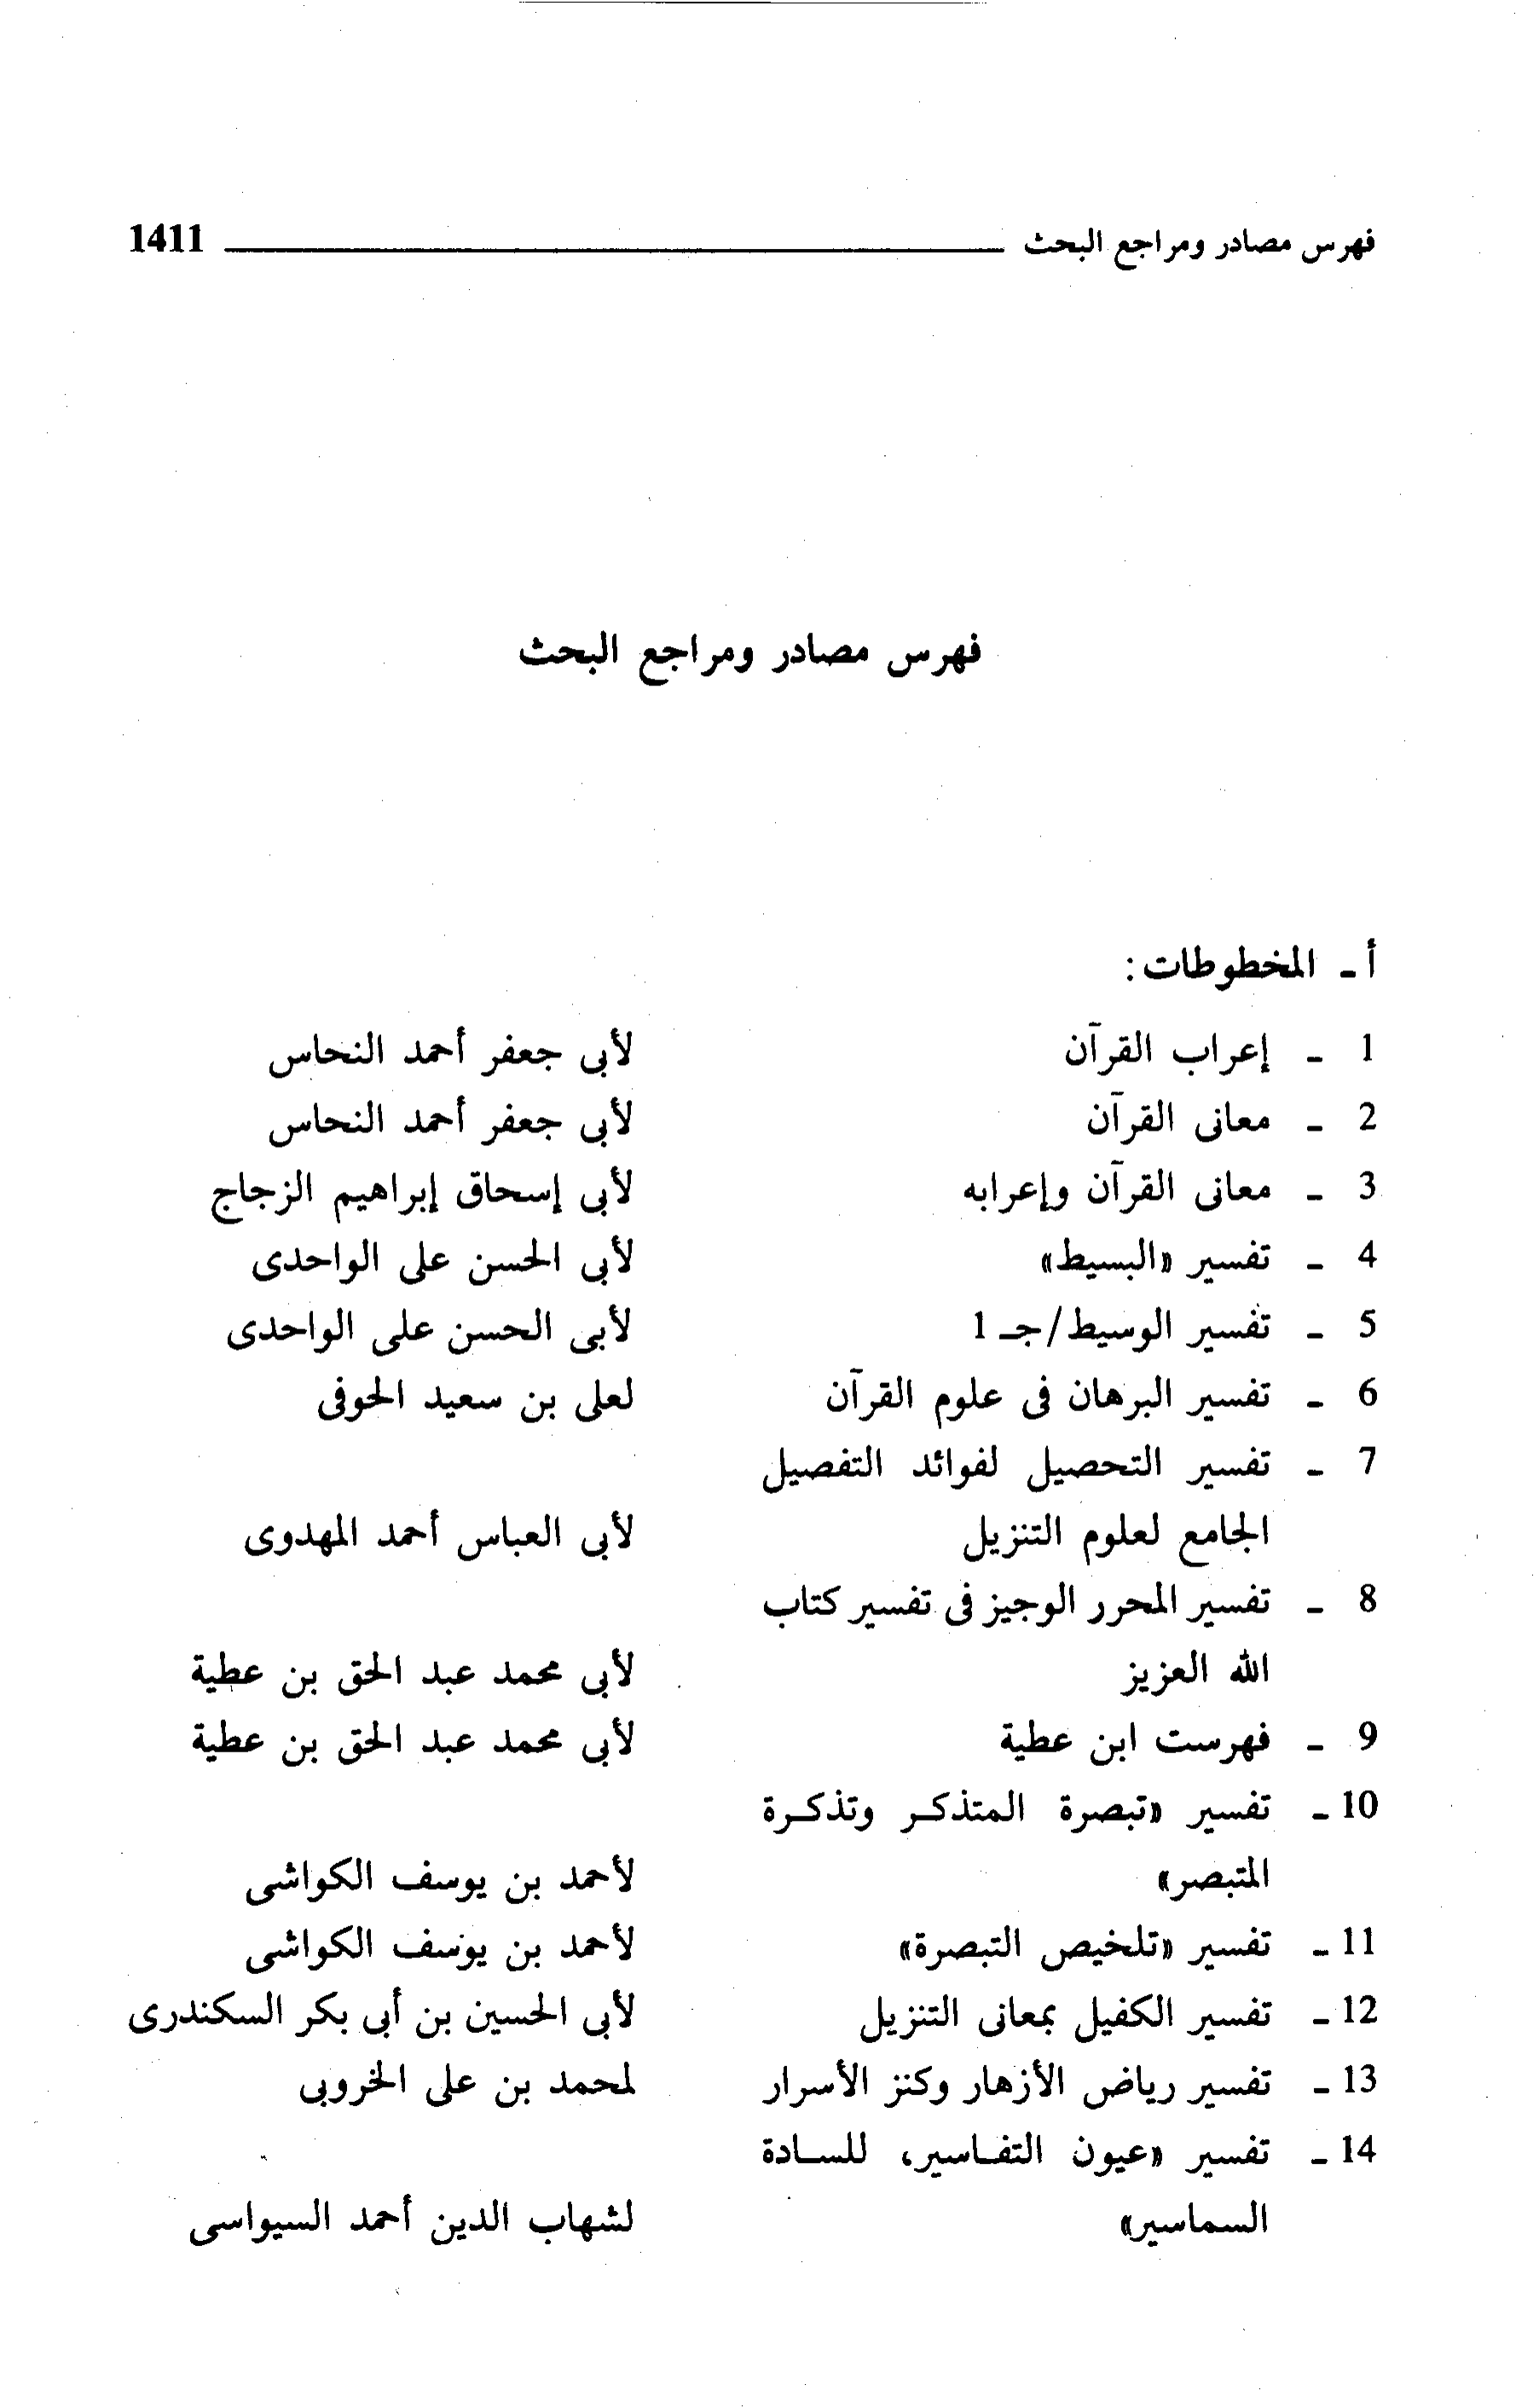 فهرس مصادر ومراجع البحث 1411
فهرس مصادر ومراجع البحث
أ ـ المخطوطات :
1 ـ إعراب القرآن لأبى جعفر أحمد النحاس
2 ـ معانى القرآن لأبى جعفر أحمد النحاس
3 ـ معانى القرآن وإعرابه لأبى إسحاق إبراهيم الزجاج
4 ـ تفسير «البسيط» لأبى الحسن على الواحدى
5 ـ تفسير الوسيط/جـ 1 لأبى الحسن على الواحدى
6 ـ تفسير البرهان فى علوم القرآن لعلى بن سعيد الحوفى
7 ـ تفسير التحصيل لفوائد التفصيل
الجامع لعلوم التنزيل لأبى العباس أحمد المهدوى
8 ـ تفسير المحرر الوجيز فى تفسير كتاب
الله العزيز لأبى محمد عبد الحق بن عطية
9 ـ فهرست ابن عطية لأبى محمد عبد الحق بن عطية
10 ـ تفسير «تبصرة المتذكـر وتذكـرة
المتبصر» لأحمد بن يوسف الكواشى
11 ـ تفسير «تلخيص التبصرة» لأحمد بن يوسف الكواشى
12 ـ تفسير الكفيل بمعانى التنزيل لأبى الحسين بن أبى بكر السكندرى
13 ـ تفسير رياض الأزهار وكنز الأسرار لمحمد بن على الخروبى
14 ـ تفسير «عيون التفـاسير، للسـادة
السماسير» لشهاب الدين أحمد السيواسى